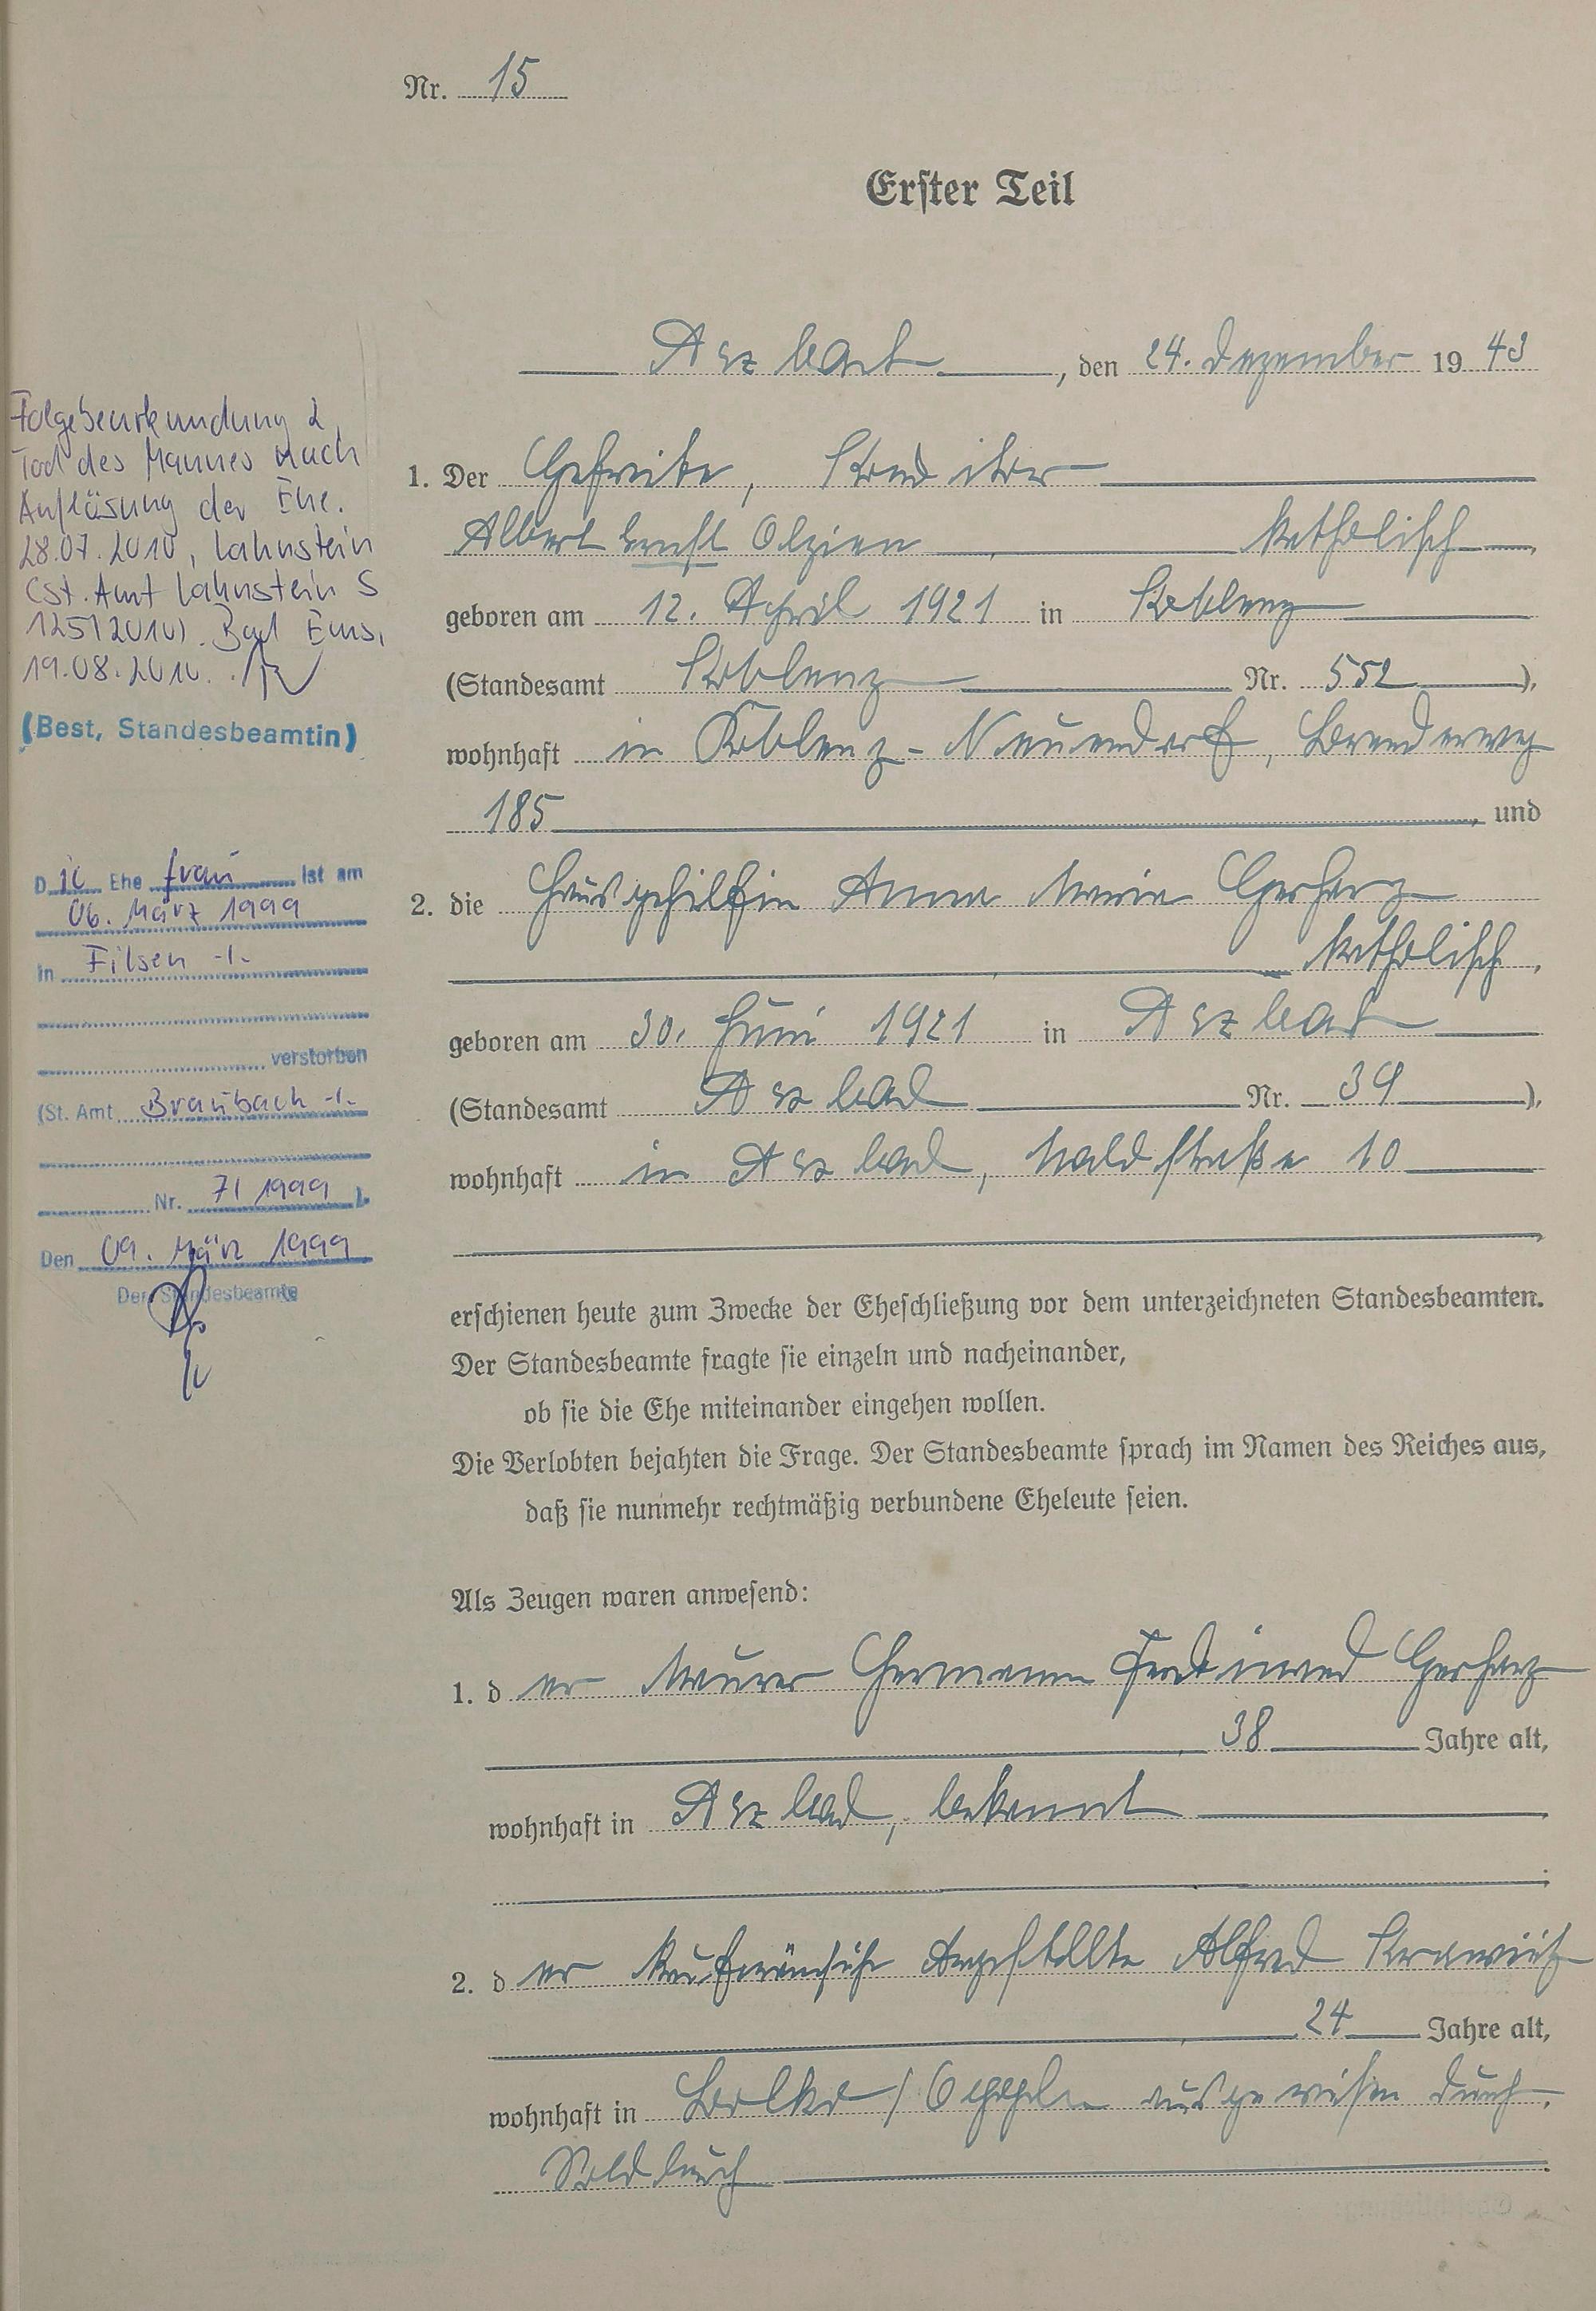 Nr. 15
Erster Teil
Arzbach, den 24. Dezember 1943
1. Der Gefreite, Konditor
Albert Ernst Olzien, katholisch,
geboren am 12. April 1921 in Koblenz
(Standesamt Koblenz Nr. 552),
wohnhaft in Koblenz-Neuendorf,
185, und
2. die Hausgehilfin Anna Maria Gerharz
, katholisch,
geboren am 30. Juni 1921 in Arzbach
(Standesamt Arzbach Nr. 39),
wohnhaft in Arzbach, Waldstraße 10
erschienen heute zum Zwecke der Eheschließung vor dem unterzeichneten Standesbeamten.
Der Standesbeamte fragte sie einzeln und nacheinander,
ob sie die Ehe miteinander eingehen wollen.
Die Verlobten bejahten die Frage. Der Standesbeamte sprach im Namen des Reiches aus,
daß sie nunmehr rechtmäßig verbundene Eheleute seien.
Als Zeugen waren anwesend:
1. der Maurer Hermann Ferdinand Gerharz
, 38 Jahre alt,
wohnhaft in Arzbach, bekannt
;
2. der kaufmännische Angestellte Alfred
, 24 Jahre alt,
wohnhaft in ausgewiesen durch
Soldbuch.
Folgebeurkundung 2,
Tod des Mannes nach
Auflösung der Ehe.
28.07.2010, Lahnstein
(St. Amt Lahnstein S
125/2010). Bad Ems,
19.08.2010.
(Best, Standesbeamtin)
Die Ehefrau ist am
06. März 1999
in Filsen -/-
verstorben
(St. Amt Braubach -/-
Nr. 7/1999).
Den 09. März 1999
Der Standesbeamte